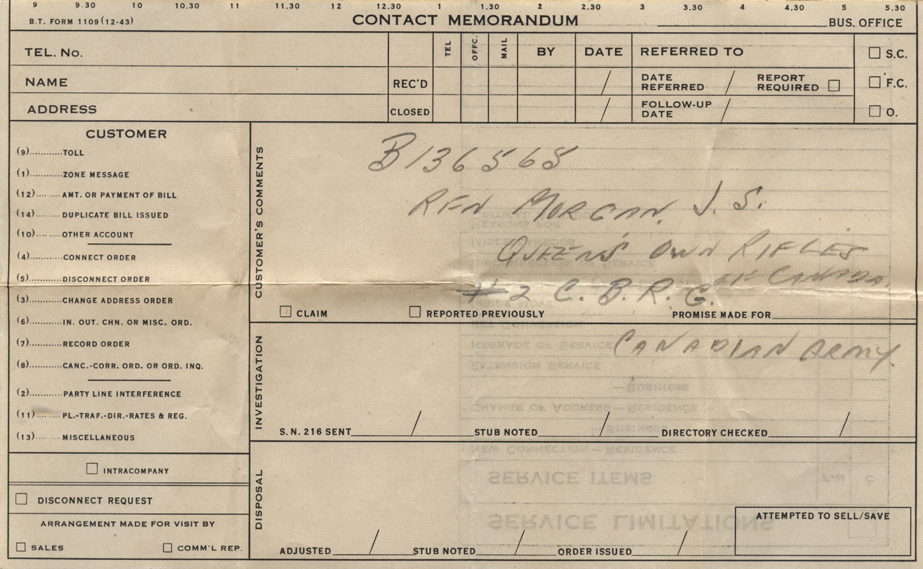 9 9.30 10 10.30 11 11.30 12 12.30 1 1.30 2 2.30 3 3.30 4 4.30 5 5.30
B.T. FORM 1109 (12-43) CONTACT MEMORANDUM BUS. OFFICE
TEL. No. TEL OFFC. MAIL BY DATE REFERRED TO S.C.
NAME REC'D / DATE REFERRED / REPORT REQUIRED F.C.
ADDRESS CLOSED / FOLLOW-UP DATE / O.
CUSTOMER
(9)............TOLL
(1)............ZONE MESSAGE
(12)..........AMT. OR PAYMENT OF BILL
(14)..........DUPLICATE BILL ISSUED
(10)..........OTHER ACCOUNT
(4)............CONNECT ORDER
(5)............DISCONNECT ORDER
(3)............CHANGE ADDRESS ORDER
(6)............IN. OUT. CHN. OR MISC. ORD.
(7)............RECORD ORDER
(8)............CANC.-CORR. ORD. OR ORD. INQ.
(2)............PARTY LINE INTERFERENCE
(11)..........PL.-TRAF.-DIR.-RATES & REG.
(13)..........MISCELLANEOUS
INTRACOMPANY
DISCONNECT REQUEST
ARRANGEMENT MADE FOR VISIT BY
SALES COMM'L REP.
CUSTOMER'S COMMENTS
B136565
RFN MORGAN, J. S.
QUEEN'S OWN RIFLES
OF CANADA.
#2 C. B. R. G.
CLAIM REPORTED PREVIOUSLY PROMISE MADE FOR
INVESTIGATION
CANADIAN ARMY.
S.N. 216 SENT / STUB NOTED / DIRECTORY CHECKED /
DISPOSAL
ATTEMPTED TO SELL/SAVE
ADJUSTED / STUB NOTED / ORDER ISSUED /
SERVICE LIMITATIONS
SERVICE ITEMS
NEW CONNECTION—RESIDENCE
—BUSINESS
CHANGE OF ADDRESS—RESIDENCE
—BUSINESS
EXTENSION SERVICE